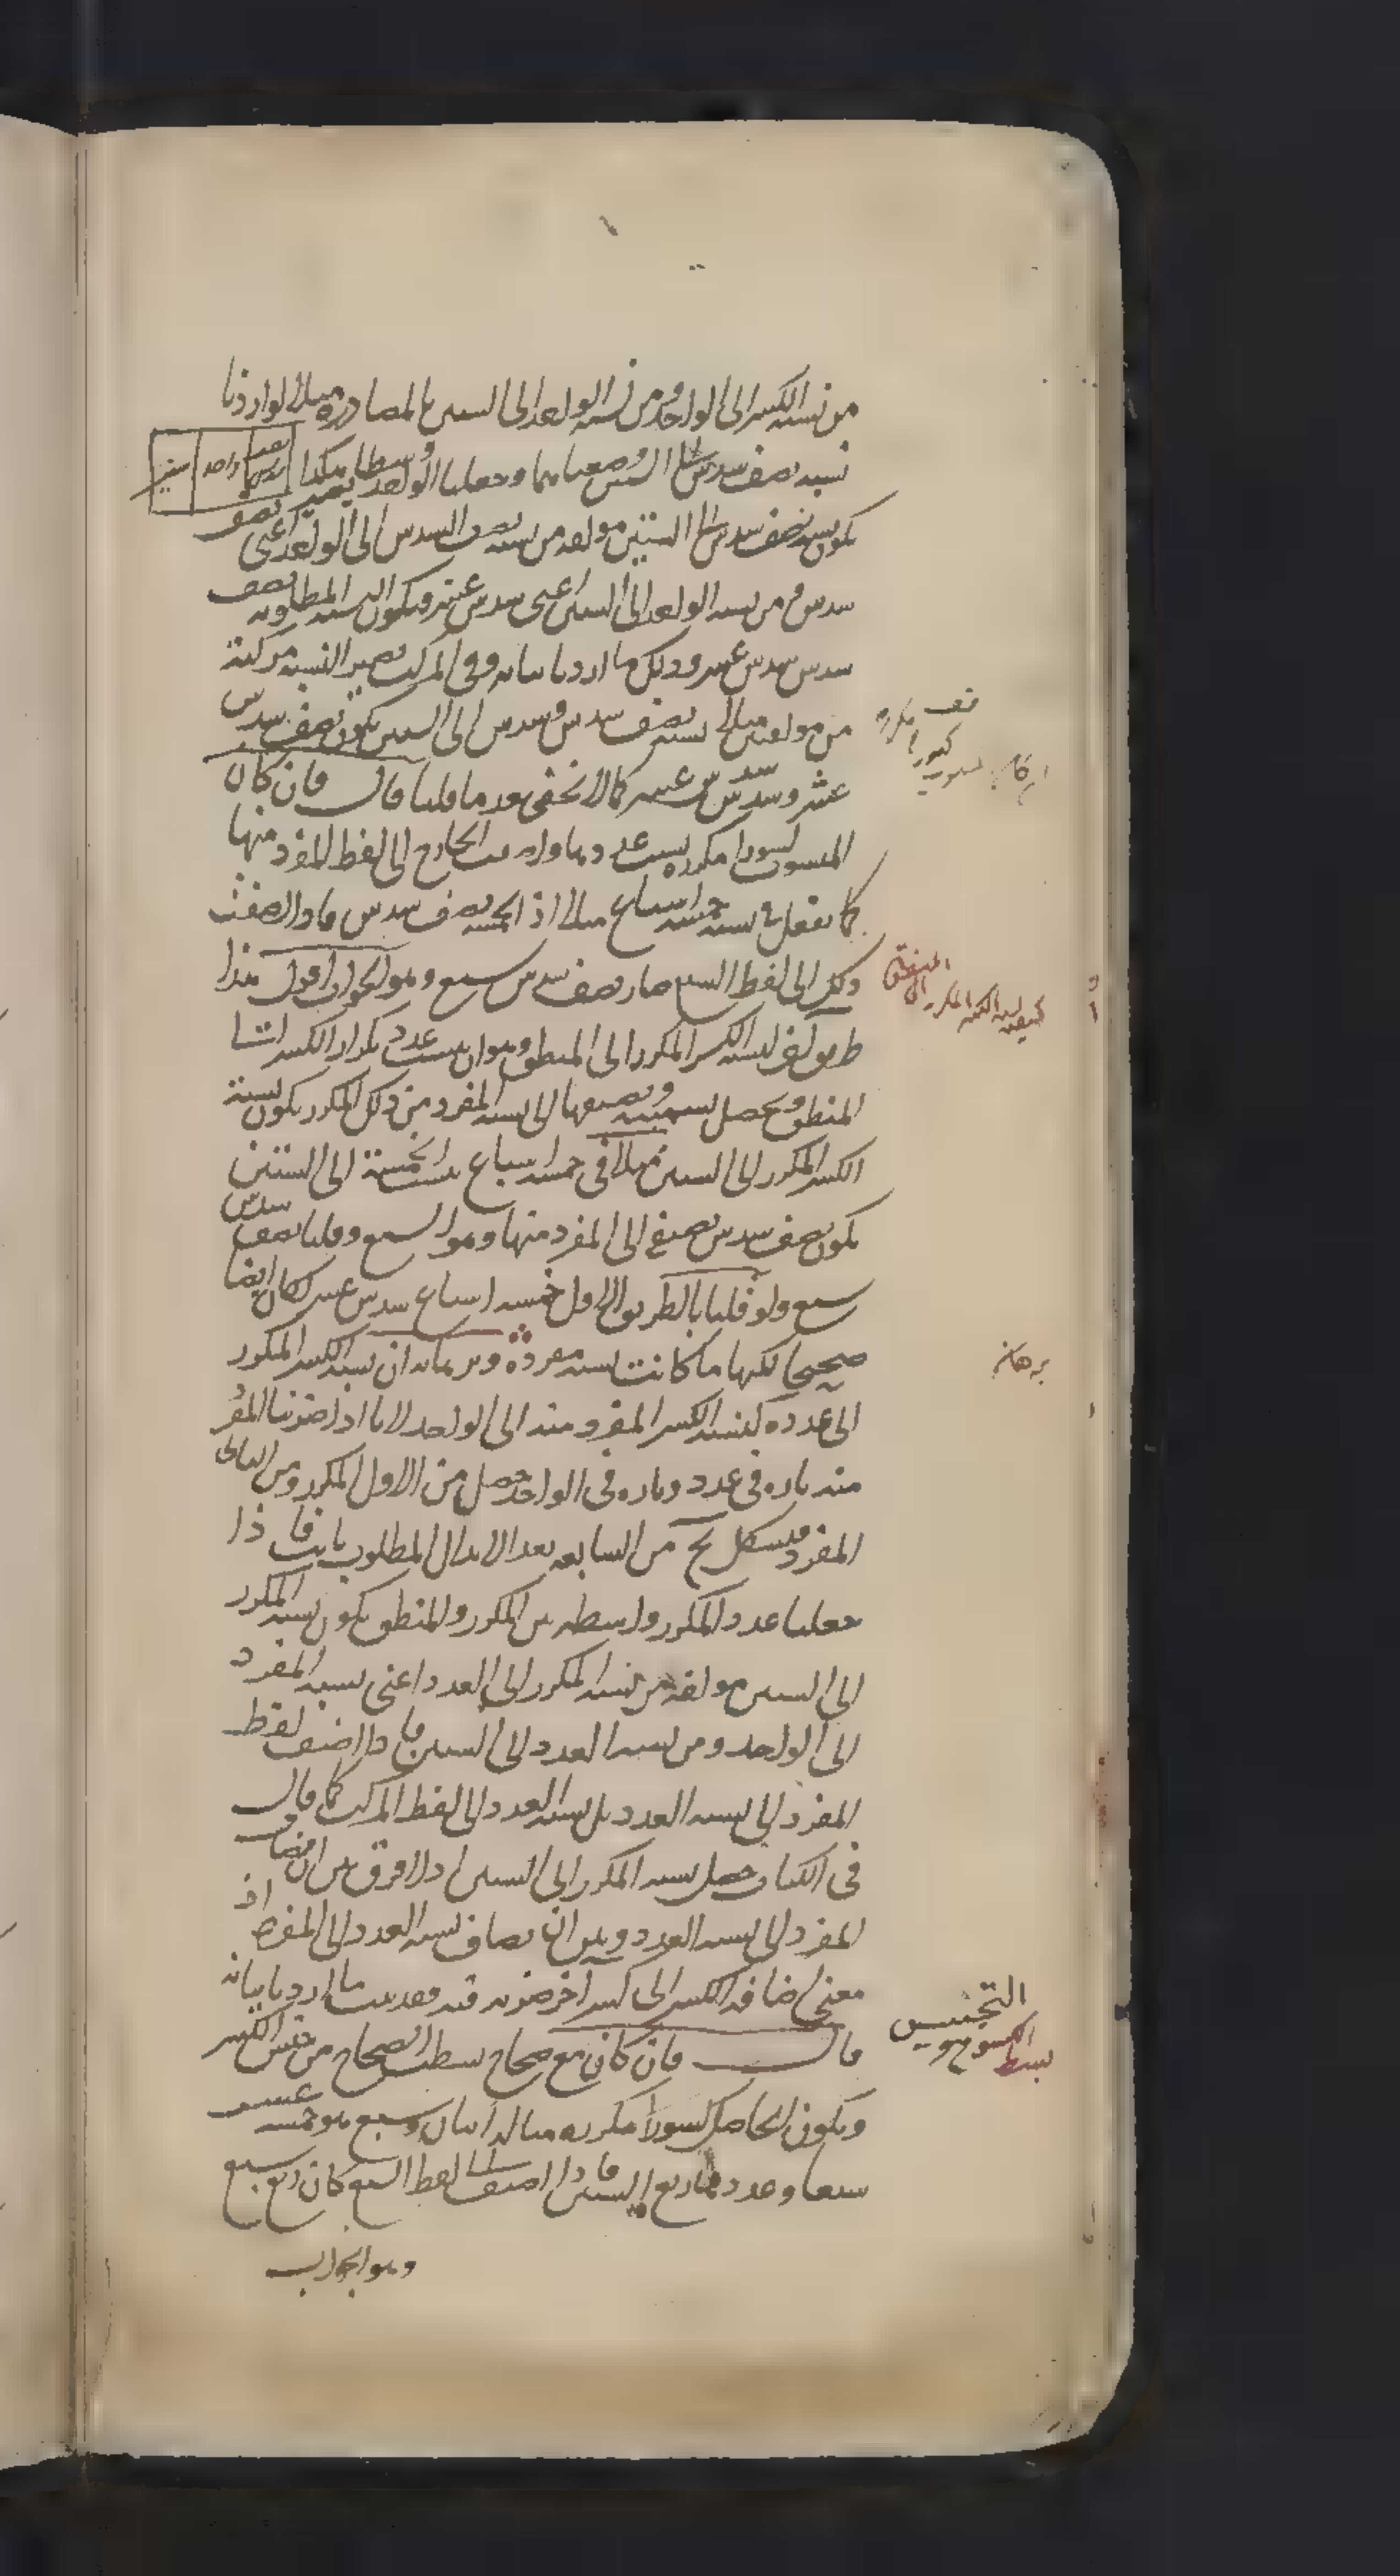 من نسبة الكسر الى الواحد ومن نسبة الواحد الى الستين بالمصادرة مثلا لو اردنا
نسبة نصف سدس الى الستين وضعناهما وجعلنا الواحد وسطا هكذا
نصف سدس واحد ستين
يكون نسبة نصف سدس الى الستين مولفة من نسبة نصف السدس الى الواحد اعنى نصف
سدس ومن نسبة الواحد الى الستين اعنى سدس عشر فيكون النسبة المطلوبة نصف
سدس سدس عشر وذلك ما اردنا بيانه وفى المركب يصير النسبة مركبة
من مولفتين مثلا نسبة نصف سدس وسدس الى الستين يكون نصف سدس سدس
عشر وسدس سدس عشر كما لا يخفى بعد ما قلنا قال فان كان
المنسوب كسورا مكررة نسبت عددها واضفت الخارج الى لفظ المفرد منها
كما تفعل فى نسبة خمسة اسباع مثلا اذ الخمسة نصف سدس فاذا اضفت
ذلك الى لفظ السبع صار نصف سدس سبع وهو الجواب اقول هذا
طريق اخر لنسبة الكسر المكرر الى المنطق وهو ان ينسب عدد تكرار الكسر الى
المنطق ويحصل نسبته ويضيفها الى نسبة المفرد من ذلك المكرر يكون نسبة
الكسر المكرر الى الستين مثلا فى خمسة اسباع نسبت الخمسة الى الستين
يكون نصف سدس نضيف الى المفرد منها وهو السبع وقلنا نصف سدس
سبع ولو قلنا بالطريق الاول خمسة اسباع سدس عشر لكان ايضا
صحيحا لكنها ما كانت نسبة مفردة وبرهانه ان نسبة الكسر المكرر
الى عدده كنسبة الكسر المفرد منه الى الواحد لانا اذا ضربنا المفرد
منه تارة فى عدد وتارة فى الواحد حصل من الاول المكرر ومن الثانى
المفرد فبشكل يح من السابعة بعد الابدال المطلوب ثابت فاذا
جعلنا عدد المكرر واسطة بين المكرر والمنطق يكون نسبة المكرر
الى الستين مولفة من نسبة المكرر الى العدد اعنى نسبة المفرد
الى الواحد ومن نسبة العدد الى الستين فاذا اضيف لفظ
المفرد الى نسبة العدد بل نسبة العدد الى لفظ المركب كما قال
فى الكتاب حصل نسبة المكرر الى الستين اذ لا فرق بين ان يضاف
المفرد الى نسبة العدد وبين ان يضاف نسبة العدد الى المفرد اذ
معنى اضافة الكسر الى كسر اخر ضربه فيه فقد ثبت ما اردنا بيانه
قال فان كان مع صحاح بسطت الصحاح من جنس الكسر
ويكون الحاصل كسورا مكررة مثاله اثنان وسبع هو خمسة عشر
سبعا وعددها ربع الستين فاذا اضيف الى لفظ السبع كان ربع سبع
وهو الجواب
كيفية نسبة الكسر المكرر الى المنطق
برهانه
التجنيس
بسط الكسور